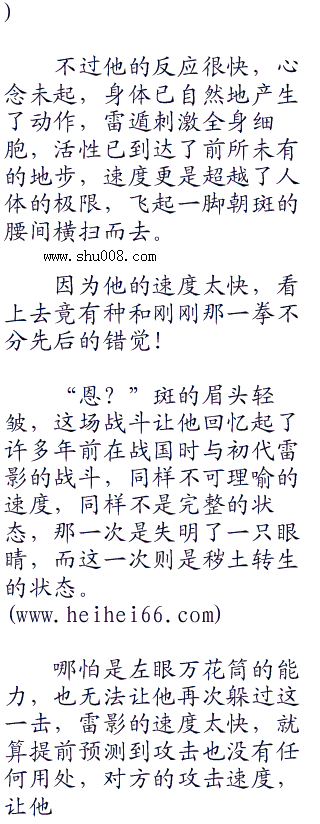 )
不过他的反应很快，心
念未起，身体已自然地产生
了动作，雷遁刺激全身细
胞，活性已到达了前所未有
的地步，速度更是超越了人
体的极限，飞起一脚朝斑的
腰间横扫而去。
www.shu008.com
因为他的速度太快，看
上去竟有种和刚刚那一拳不
分先后的错觉！
“恩？”斑的眉头轻
皱，这场战斗让他回忆起了
许多年前在战国时与初代雷
影的战斗，同样不可理喻的
速度，同样不是完整的状
态，那一次是失明了一只眼
睛，而这一次则是秽土转生
的状态。
(www.heihei66.com)
哪怕是左眼万花筒的能
力，也无法让他再次躲过这
一击，雷影的速度太快，就
算提前预测到攻击也没有任
何用处，对方的攻击速度，
让他